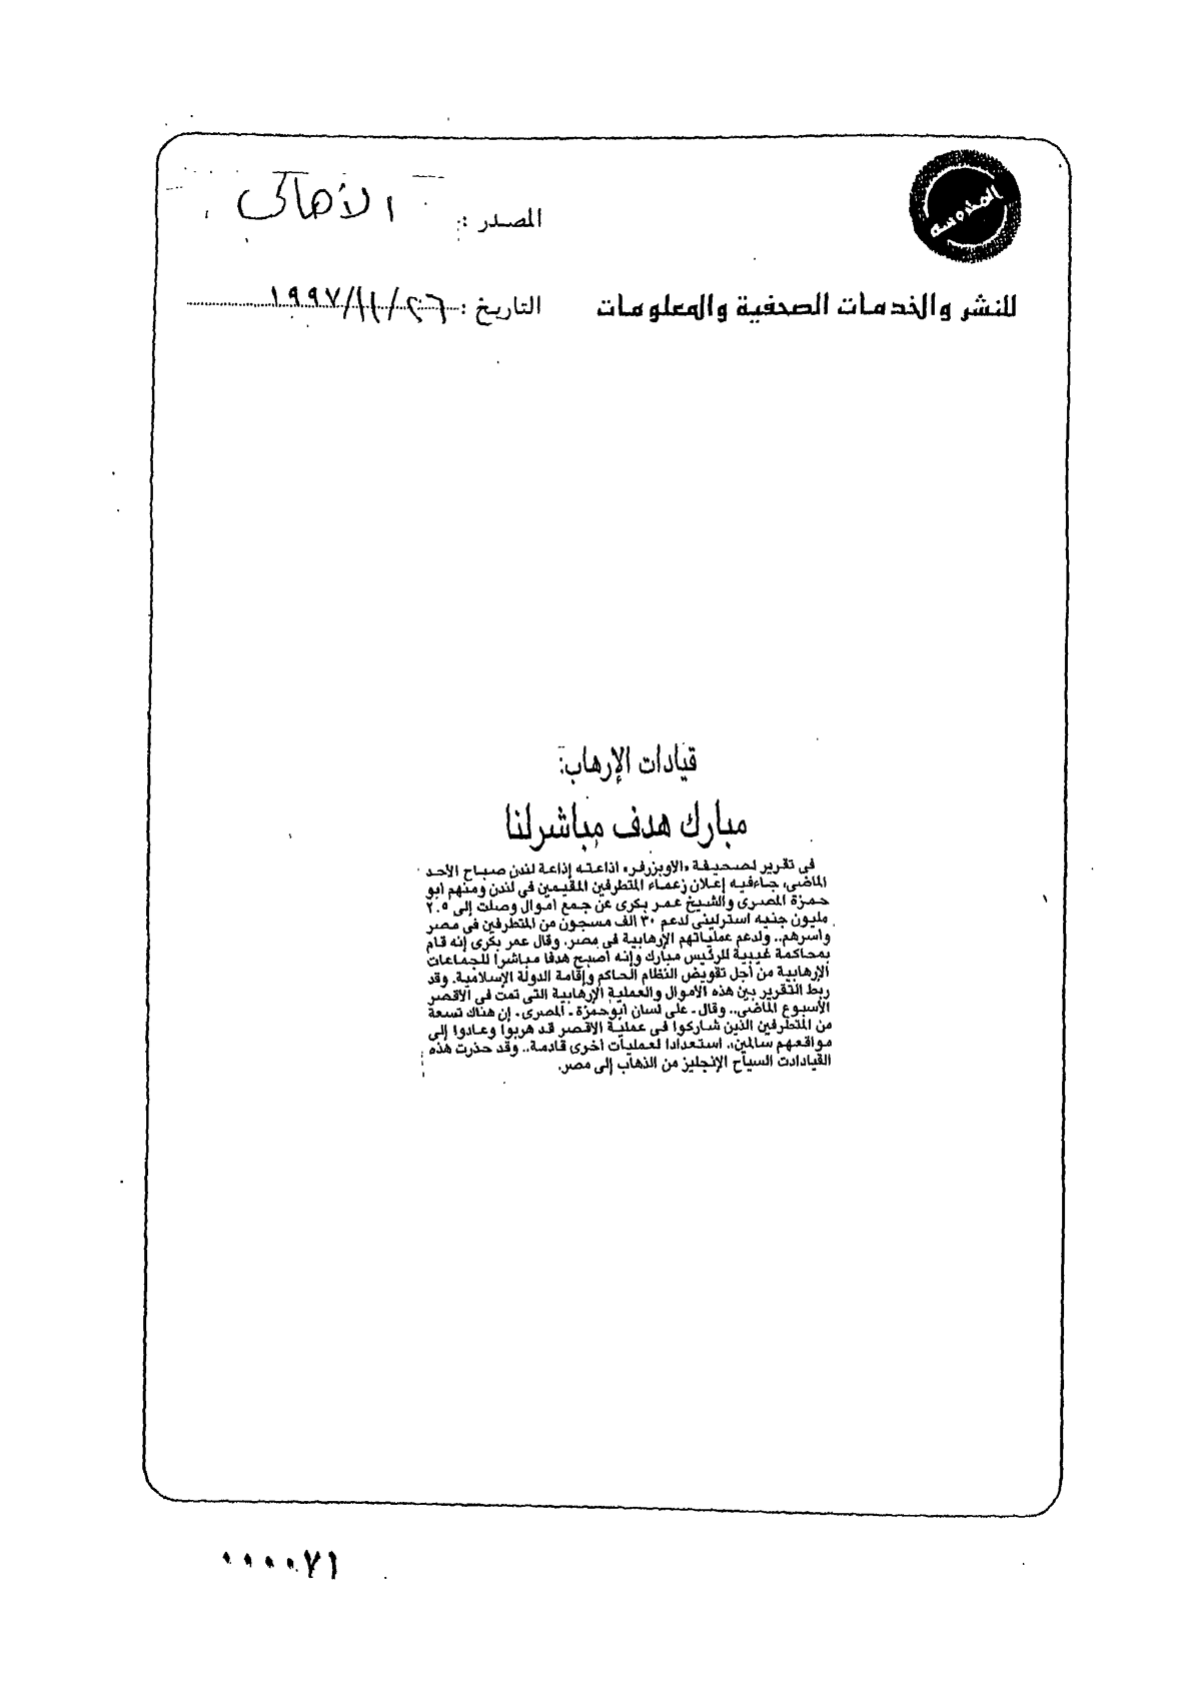 المحروسة
المصدر : الأهالى
للنشر والخدمات الصحفية والمعلومات
التاريخ : ٢٦/١١/١٩٩٧
قيادات الإرهاب:
مبارك هدف مباشر لنا
فى تقرير لصحيفة «الاوبزرفر» اذاعته إذاعة لندن صباح الأحد
الماضى، جاءفيه إعلان زعماء المتطرفين المقيمين فى لندن ومنهم ابو
حمزة المصرى والشيخ عمر بكرى عن جمع اموال وصلت إلى ٢.٥
مليون جنيه استرلينى لدعم ٣٠ الف مسجون من المتطرفين فى مصر
واسرهم.. ولدعم عملياتهم الإرهابية فى مصر. وقال عمر بكرى إنه قام
بمحاكمة غيبية للرئيس مبارك وإنه أصبح هدفا مباشرا للجماعات
الإرهابية من أجل تقويض النظام الحاكم وإقامة الدولة الإسلامية. وقد
ربط التقرير بين هذه الأموال والعملية الإرهابية التى تمت فى الأقصر
الأسبوع الماضى.. وقال - على لسان أبوحمزة - المصرى. إن هناك تسعة
من المتطرفين الذين شاركوا فى عملية الأقصر قد هربوا وعادوا إلى
مواقعهم سالمين.. استعدادا لعمليات اخرى قادمة.. وقد حذرت هذه
القيادادت السياح الإنجليز من الذهاب إلى مصر.
٠٠٠٠٧١